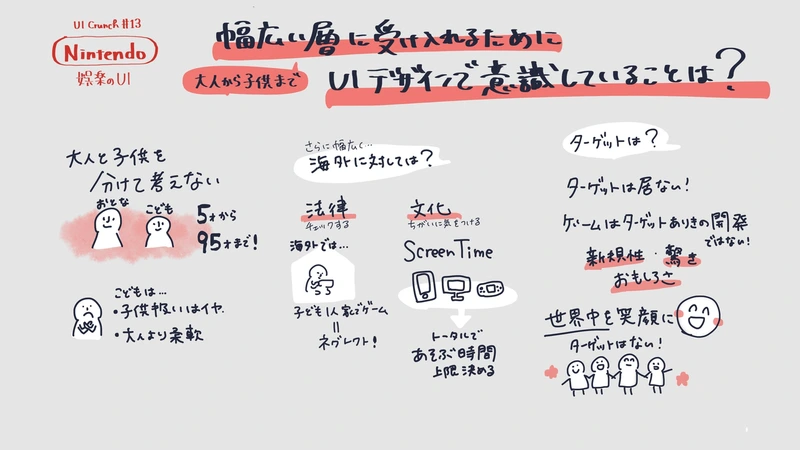 UI Crunch #13
Nintendo
娯楽のUI
幅広い層に受け入れるために
大人から子供まで
UIデザインで意識していることは?
大人と子供を
分けて考えない
おとな
こども
5才から
95才まで!
こどもは…
・子供扱いはイヤ
・大人より柔軟
さらに幅広く…
海外に対しては?
法律
チェックする
海外では…
子ども1人家でゲーム
=
ネグレクト!
文化
ちがいに気をつける
Screen Time
トータルで
あそぶ時間
上限決める
ターゲットは?
ターゲットは居ない!
ゲームはターゲットありきの開発
ではない!
新規性・驚き
おもしろさ
世界中を笑顔に
ターゲットはない!